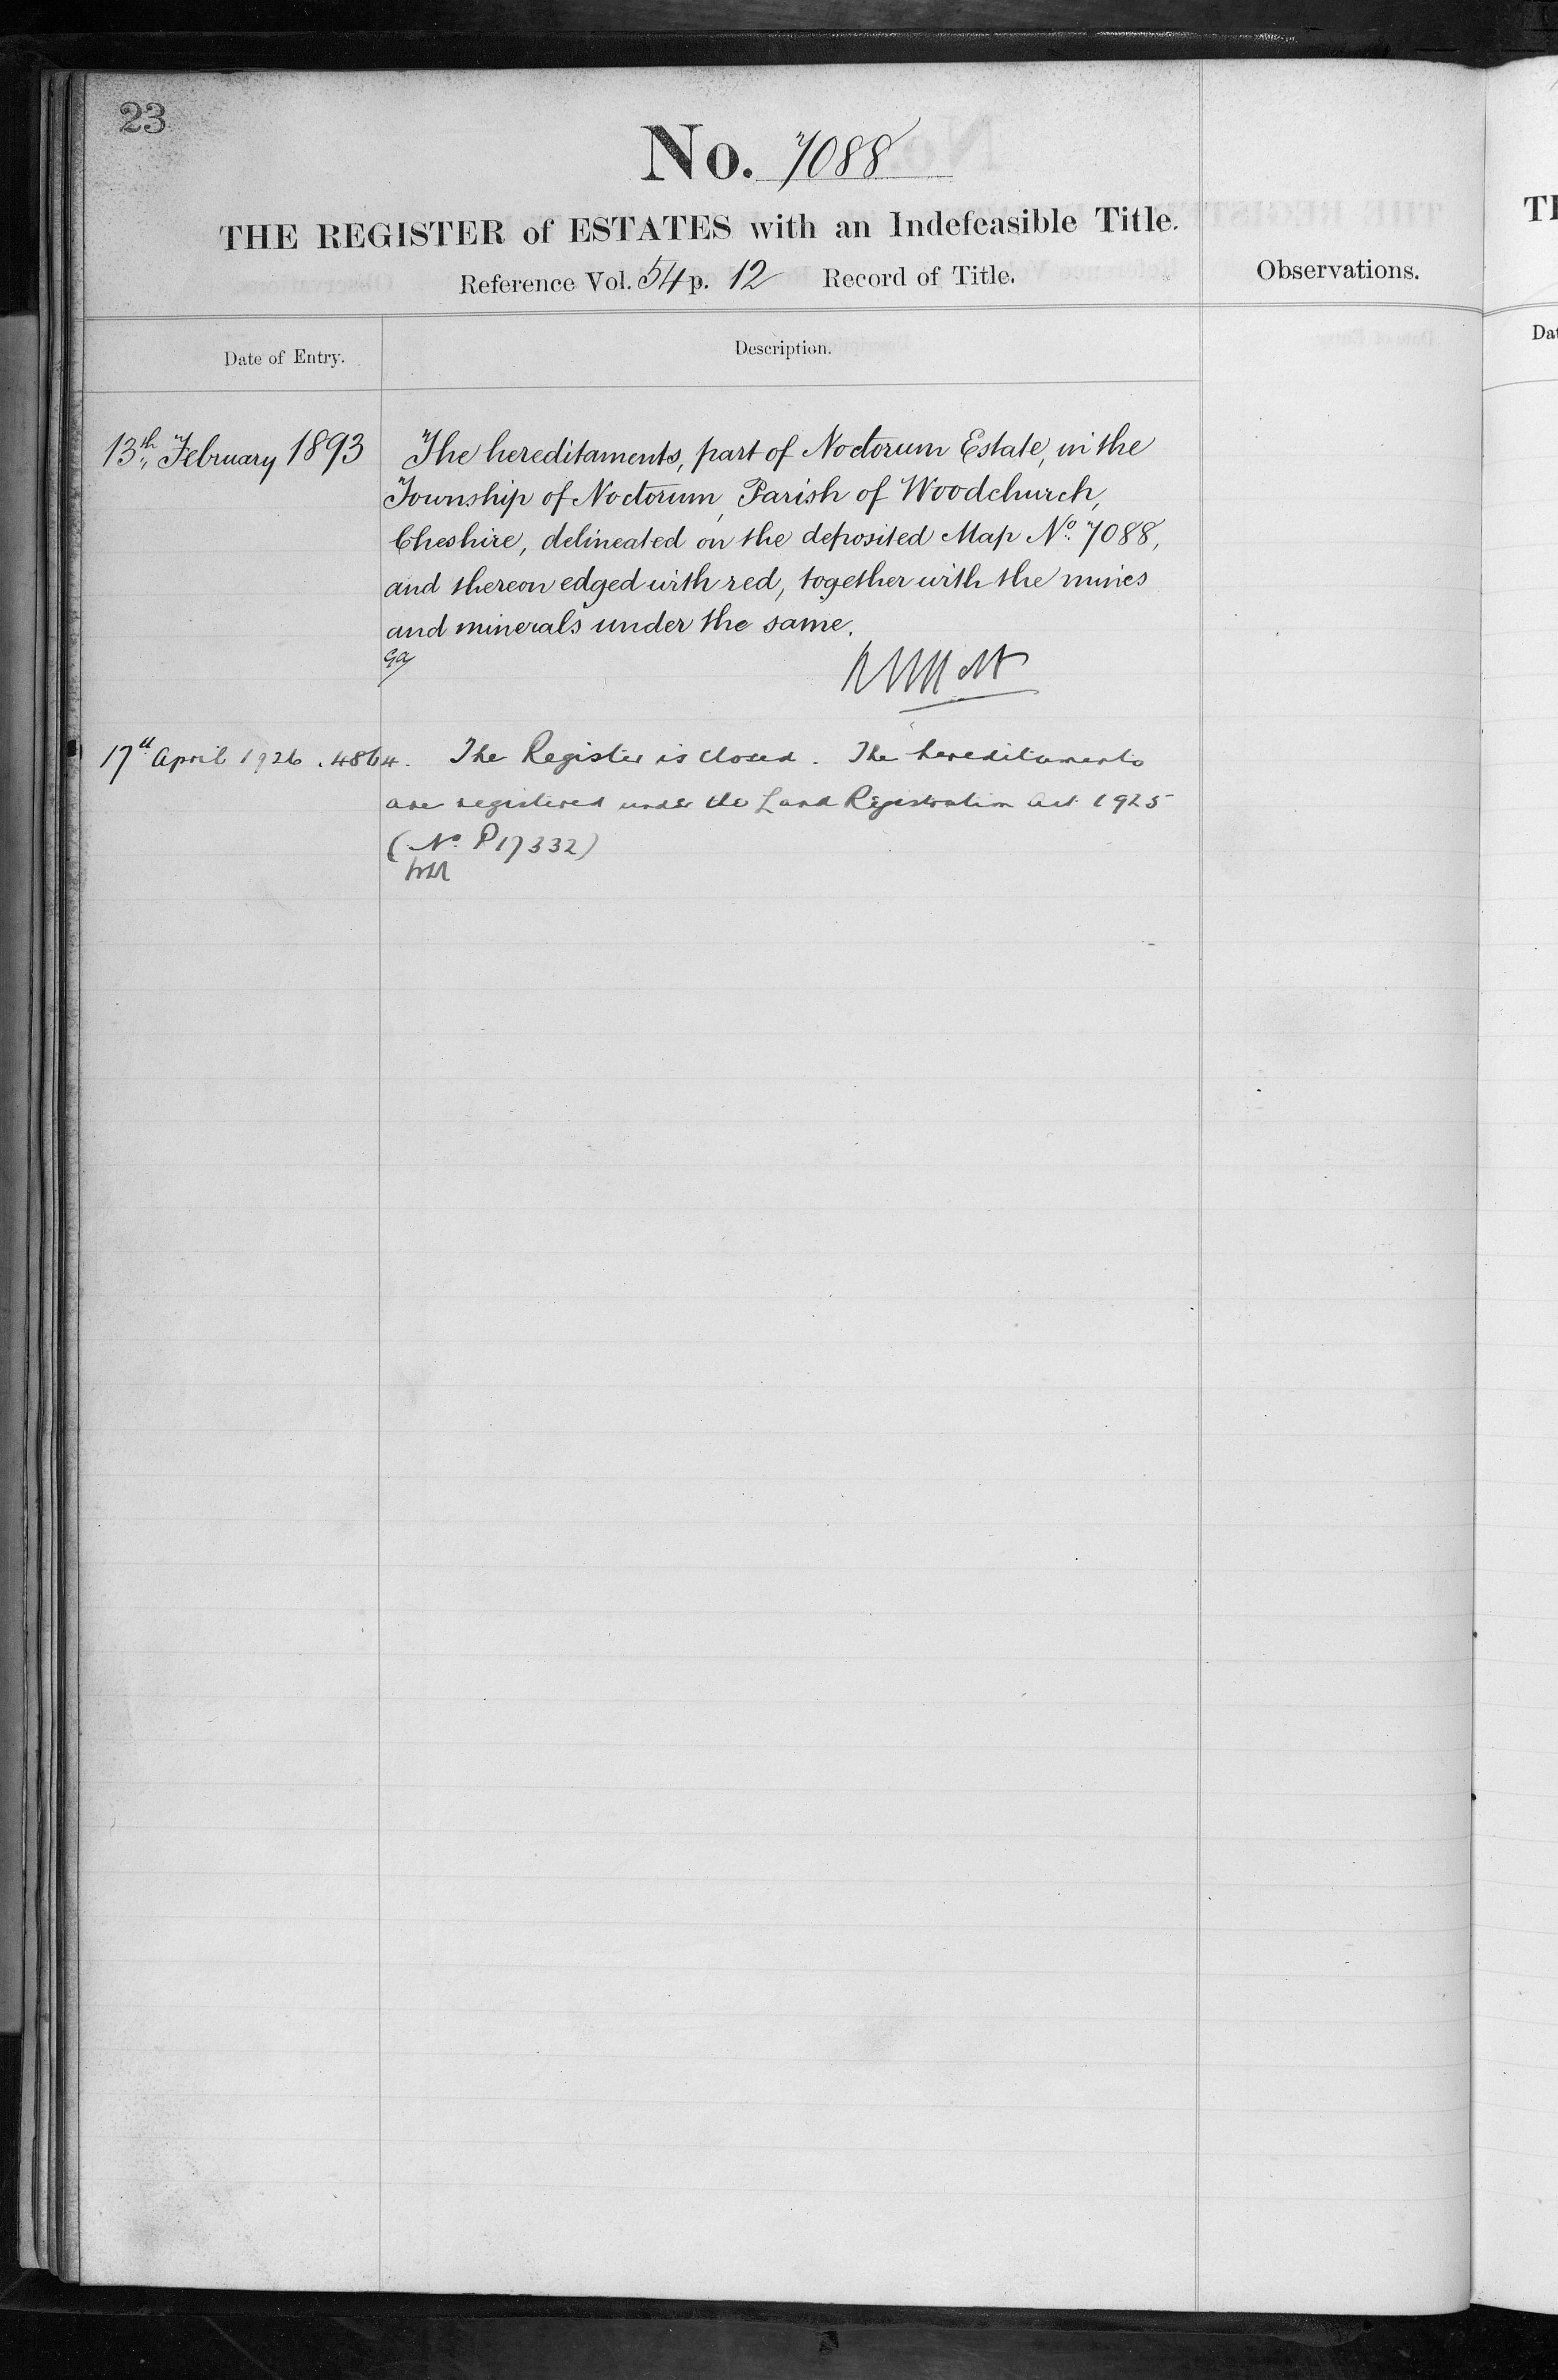 23
No. 7088
THE REGISTER of ESTATES with an Indefeasible Title.
Reference Vol. 54 p. 12 Record of Title.
Observations.
Date of Entry.
Description.
13th February 1893 The hereditaments, part of Noctorum Estate, in the
Township of Noctorum, Parish of Woodchurch,
Cheshire, delineated on the deposited Map No. 7088,
and thereon edged with red, together with the mines
and minerals under the same.
17th April 1926. 4864. The Register is closed. The hereditaments
are registered under the Land Registration Act 1925
(No. P17332)